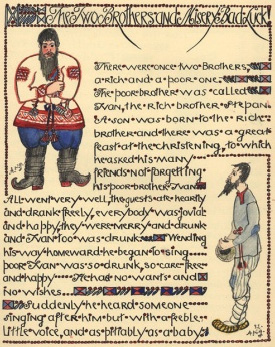 The Two Brothers and Misery Bad Luck
There were once two Brothers,
a rich and a poor one.
The poor brother was called
Ivan, the rich brother Stepan.
A son was born to the rich
brother and there was a great
feast at the christening, to which
he asked his many
friends not forgetting
his poor brother Ivan
All went very well, the guests ate heartily
and drank freely, everybody was jovial
and happy, they were merry and drunk
and Ivan too was drunk. Wending
his way homeward he began to sing.
poor Ivan was so drunk, so care free
and happy He had no wants and
no wishes
Suddenly he heard someone
singing after him but with a feeble
little voice, and as pitifully as a baby.